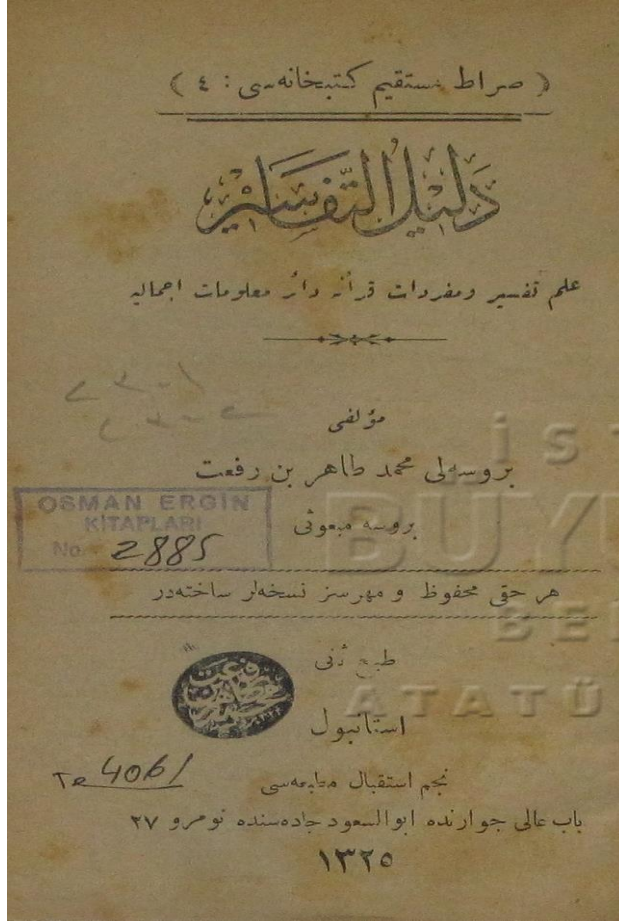 ﴿ صراط مستقيم كتبخانه‌سی : ٤ ﴾
دَلِيلُ التَّفَاسِيْر
علم تفسير ومفردات قرآنه دائر معلومات اجماليه
مؤلفی
بروسه‌لی محمد طاهر بن رفعت
بروسه مبعوثی
OSMAN ERGİN
KİTAPLARI
No. 2885
هر حقی محفوظ و مهرسز نسخه‌لر ساخته‌در
طبع ثانی
استانبول
Te 4061
نجم استقبال مطبعه‌سی
باب عالی جوارنده ابوالسعود جاده‌سنده نومرو ٢٧
١٣٢٥
İST
BÜYÜ
BEL
ATATÜ